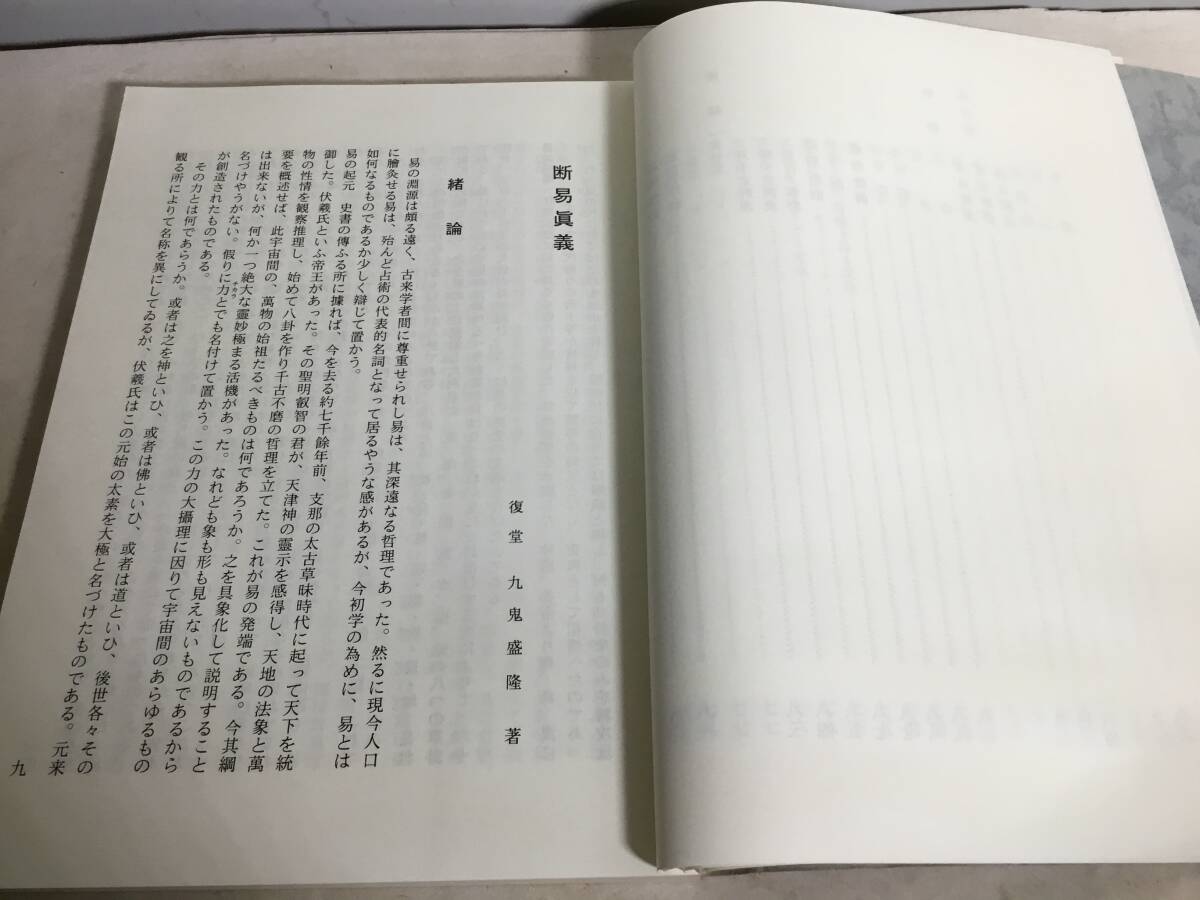 断易眞義
復堂 九鬼盛隆 著
緒論
易の淵源は頗る遠く、古来学者間に尊重せられし易は、其深遠なる哲理であった。然るに現今人口
に膾灸せる易は、殆んど占術の代表的名詞となって居るやうな感があるが、今初学の為めに、易とは
如何なるものであるか少しく辯じて置かう。
易の起元 史書の傳ふる所に據れば、今を去る約七千餘年前、支那の太古草昧時代に起って天下を統
御した。伏羲氏といふ帝王があった。その聖明叡智の君が、天津神の靈示を感得し、天地の法象と萬
物の性情を観察推理し、始めて八卦を作り千古不磨の哲理を立てた。これが易の発端である。今其綱
要を概述せば、此宇宙間の、萬物の始祖たるべきものは何であろうか。之を具象化して説明すること
は出来ないが、何か一つ絶大な靈妙極まる活機があった。なれども象も形も見えないものであるから
名づけやうがない。假りに力チカラとでも名付けて置かう。この力の大攝理に因りて宇宙間のあらゆるもの
が創造されたものである。
その力とは何であらうか。或者は之を神といひ、或者は佛といひ、或者は道といひ、後世各々その
観る所によりて名称を異にしてゐるが、伏羲氏はこの元始の太素を大極と名づけたものである。元来
九